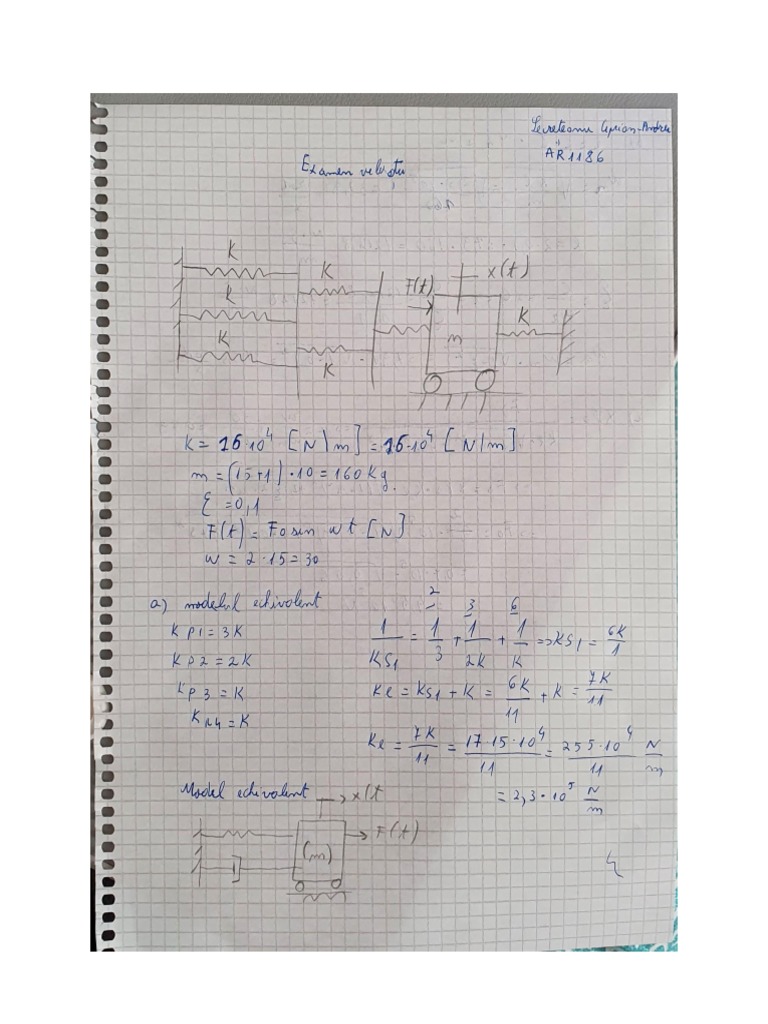 Ciprian-Andrei
AR1186
Examen
K
K
K
K
K
F(t)
x(t)
K
m
K = 16·10⁴ [N\m] = 16·10⁴ [N/m]
m = (15+1)·10 = 160 Kg
ξ = 0,1
F(t) = F0 sin wt [N]
w = 2·15 = 30
a) modelul echivalent
Kp1 = 3K
Kp2 = 2K
Kp3 = K
= K
2 3 6
1/KS1 = 1/3 + 1/2K + 1/K => KS1 = 6K/1
Ke = KS1 + K = 6K/11 + K = 7K/11
Ke = 7K/11 = 17·15·10⁴/11 = 255·10⁴/11 N/m
= 2,3·10⁵ N/m
Model echivalent
x(t
F(t)
(m)